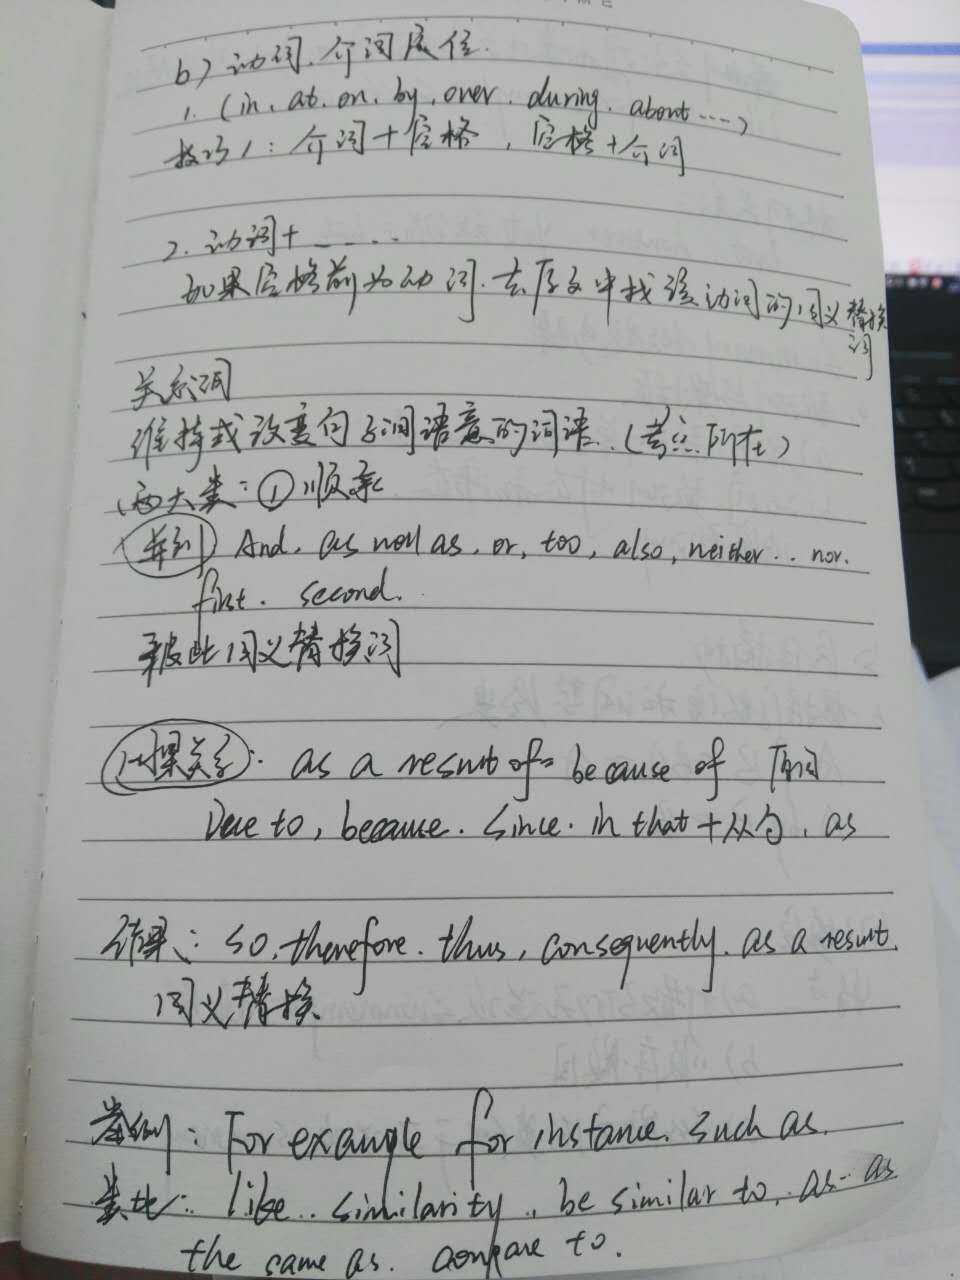 b) 动词、介词定位.
1. (in. at. on. by. over. during. about ····)
技巧1: 介词+空格, 空格+介词
2. 动词+ .....
如果空格前为动词. 去原文中找该动词的同义替换
词
关系词
维持或改变句子间语意的词语. (考点所在)
两大类: ① 顺承
并列 And, as well as, or, too, also, neither .. nor.
first. second.
彼此同义替换词
因果关系: as a result of = because of 
Due to, because. Since. in that + 从句. as
结果: so, therefore. thus, consequently. as a result.
同义替换
举例: For example for instance. Such as.
类比: like.. similarity.. be similar to, as·· as
the same as. compare to.